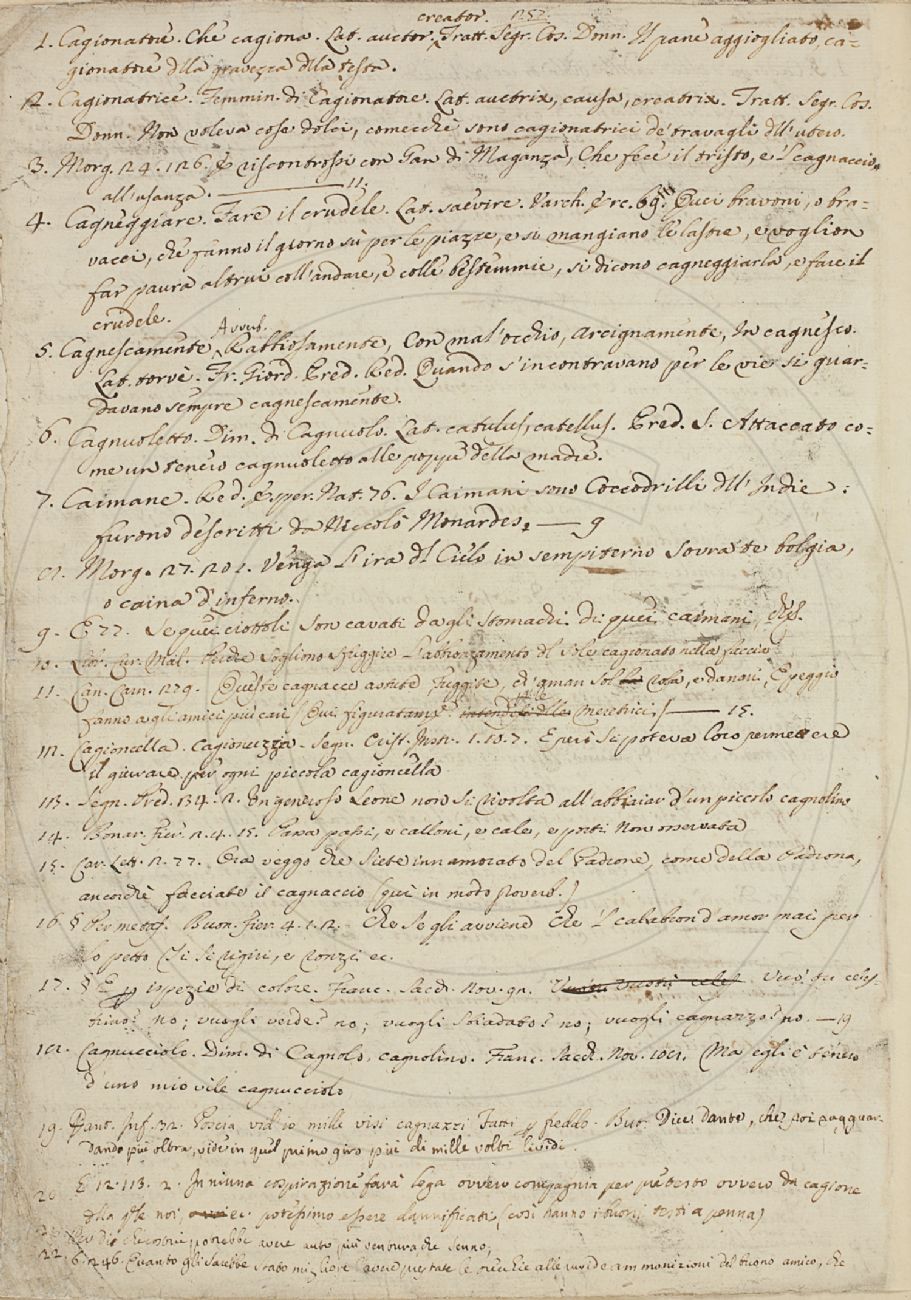 creator. 1252.
1. Cagionatore. Che cagiona. Lat. auctor, Tratt. Segr. Cos. Donn. Il pane aggiogliato, ca=
gionatore dlla gravezza dlla testa.
2. Cagionatrice. Femmin. di Cagionatore. Lat. auctrix, causa, creatrix. Tratt. Segr. Cos.
Donn. Non voleva cose dolci, comecchè sono cagionatrici de' travagli dll' utero.
3. Morg. 24. 126. E riscontrossi con Gan di Maganza, Che fece il tristo, e 'l cagnaccio
all'usanza. — 11.
4. Cagneggiare. Fare il crudele. Lat. saevire. Varch. Erc. 69. Quei bravoni, o bra=
vacci, che fanno il giorno su per le piazze, e si mangiano le lastre, e voglion
far paura altrui coll'andare, e colle bestemmie, si dicono cagneggiarla, e fare il
crudele.
Avverb.
5. Cagnescamente, Rabbiosamente, Con mal' occhio, Arcignamente, In cagnesco.
Lat. torvè. Fr. Giord. Pred. Red. Quando s'incontravano per le vie si guar=
davano sempre cagnescamente.
6. Cagnuoletto. Dim. di Cagnuolo. Lat. catulus, catellus. Pred. S. Attaccato co=
me un tenero cagnuoletto alle poppe della madre.
7. Caimane. Red. Esper. Nat. 76. I Caimani sono Coccodrilli dll' Indie:
furono descritti da Niccolò Monardes. — 9
8. Morg. 27. 201. Venga l'ira dl Cielo in sempiterno Sovra te bolgia,
o caina d'inferno.
9. E 77. Se quei ciottoli son cavati dagli stomachi di quei caimani,
10. Lib. Cur. Mal. sogliono fuggire l'abbronzamento dl Sole cagionato nella faccia
11. Can. Carn. 279. Queste cagnacce astute fuggite, ch' aman sol la roba, e danari, E peggio
fanno agli amici più cari (Qui figuratam. meretrici) — 15.
12. Cagioncella. Cagionuzza. Segn. Crist. Instr. 1. 10. 7. E però si poteva loro permettere
il giurare per ogni piccola cagioncella
13. Segn. Pred. 34. 2. Un generoso Leone non si rivolta all'abbaiar d'un piccolo cagnolino
14. Bonar. Fier. 2. 4. 15. e calloni, e cale, e porti Non osservata
15. Car. Lett. 2. 77. Ora veggo che siete innamorato del Padrone, come della Padrona,
ancorchè facciate il cagnaccio (qui in modo proverb.)
16. § Per metaf. Buon. Fier. 4. 1. 2. Che se gli avviene Che 'l calabron d'amor mai per
lo petto Gli si rigiri, e ronzi ec.
17. § E spezie di colore. Franc. Sacch. Nov. 92. Vuoi tu celes
trino? no; vuogli verde? no; vuogli sbiadato? no; vuogli cagnazzo? no. — 19
18. Cagnucciolo. Dim. di Cagnolo, cagnolino. Franc. Sacch. Nov. 108. Ma egli è tenero
d'uno mio vile cagnucciolo
19. Dant. Inf. 32. Poscia vid'io mille visi cagnazzi Fatti p freddo. But. Dice Dante, che poi ragguar
dando più oltra, vide in quel primo giro più di mille volti lividi.
20. E 12. 113. 2. In niuna cospirazione farà lega ovvero compagnia per pretesto ovvero da cagione
dlla qle noi, ec. potessimo essere dannificati (così hanno i buoni testi a penna)
potrebbe avere auto più ventura che senno;
22. 6. 246. Quanto gli sarebbe stato migliore avere prestate le orecchie alle ammonizioni del buono amico, che